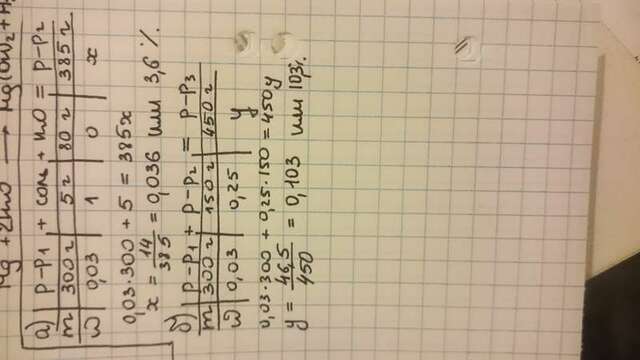 Mg + 2H₂O → Mg(OH)₂ + H
а) | р-р₁ + соль + H₂O = р-р₂
m | 300 г | 5 г | 80 г | 385 г
ω | 0,03 | 1 | 0 | x
0,03·300 + 5 = 385x
x = 14/385 = 0,036 или 3,6 %.
б) | р-р₁ + р-р₂ = р-р₃
m | 300 г | 150 г | 450 г
ω | 0,03 | 0,25 | y
0,03·300 + 0,25·150 = 450y
y = 46,5/450 = 0,103 или 10,3%.